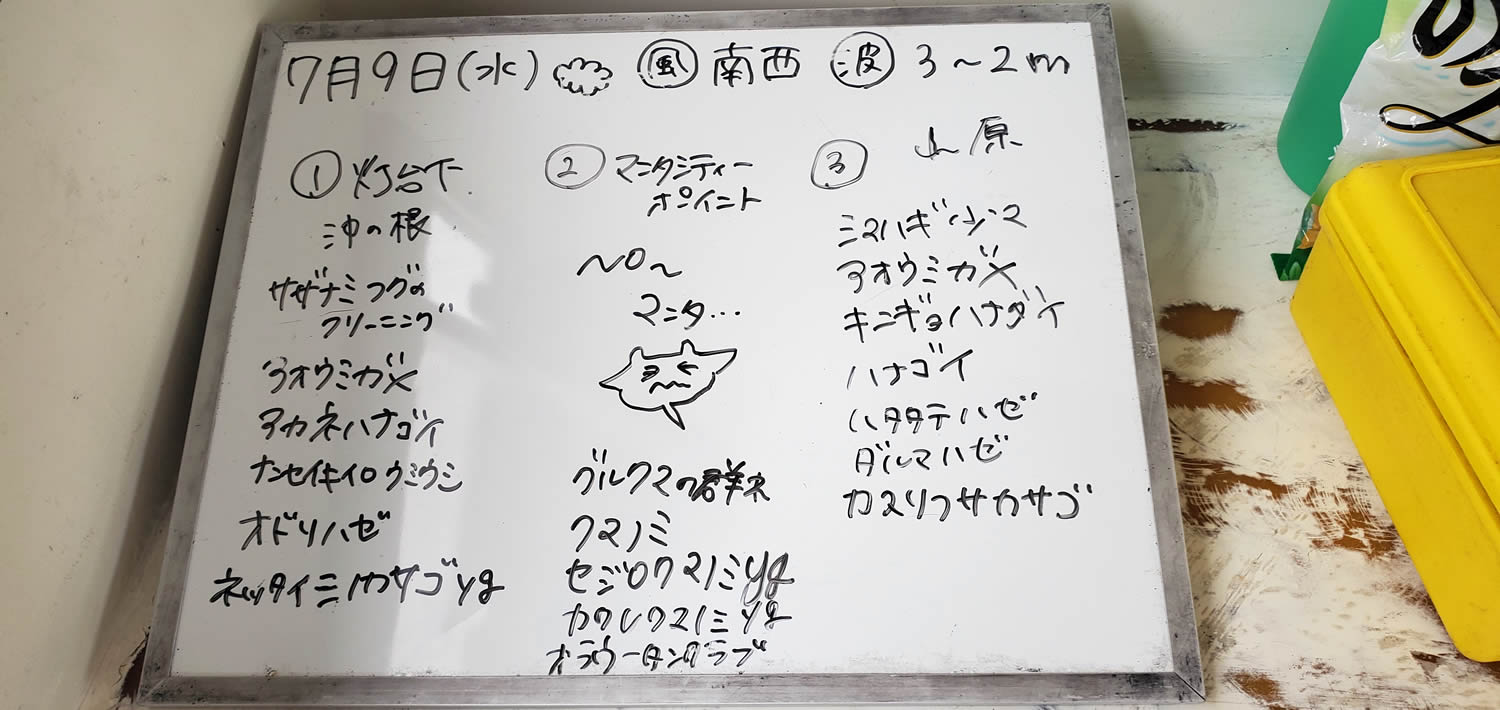 7月9日(水) 風 南西 波 3~2m
① 灯台下
沖の根
サザナミフグの
クリーニング
アオウミガメ
アカネハナゴイ
ナンセイキイロウミウシ
オドリハゼ
ネッタイミノカサゴyg
② マンタシティー
ポイント
~NO~
マンタ…
グルクマの群れ
クマノミ
セジロクマノミyg
カクレクマノミyg
オラウータンクラブ
③ 山原
ミスハギ
アオウミガメ
キンギョハナダイ
ハナゴイ
ハタタテハゼ
ダルマハゼ
カスリフサカサゴ